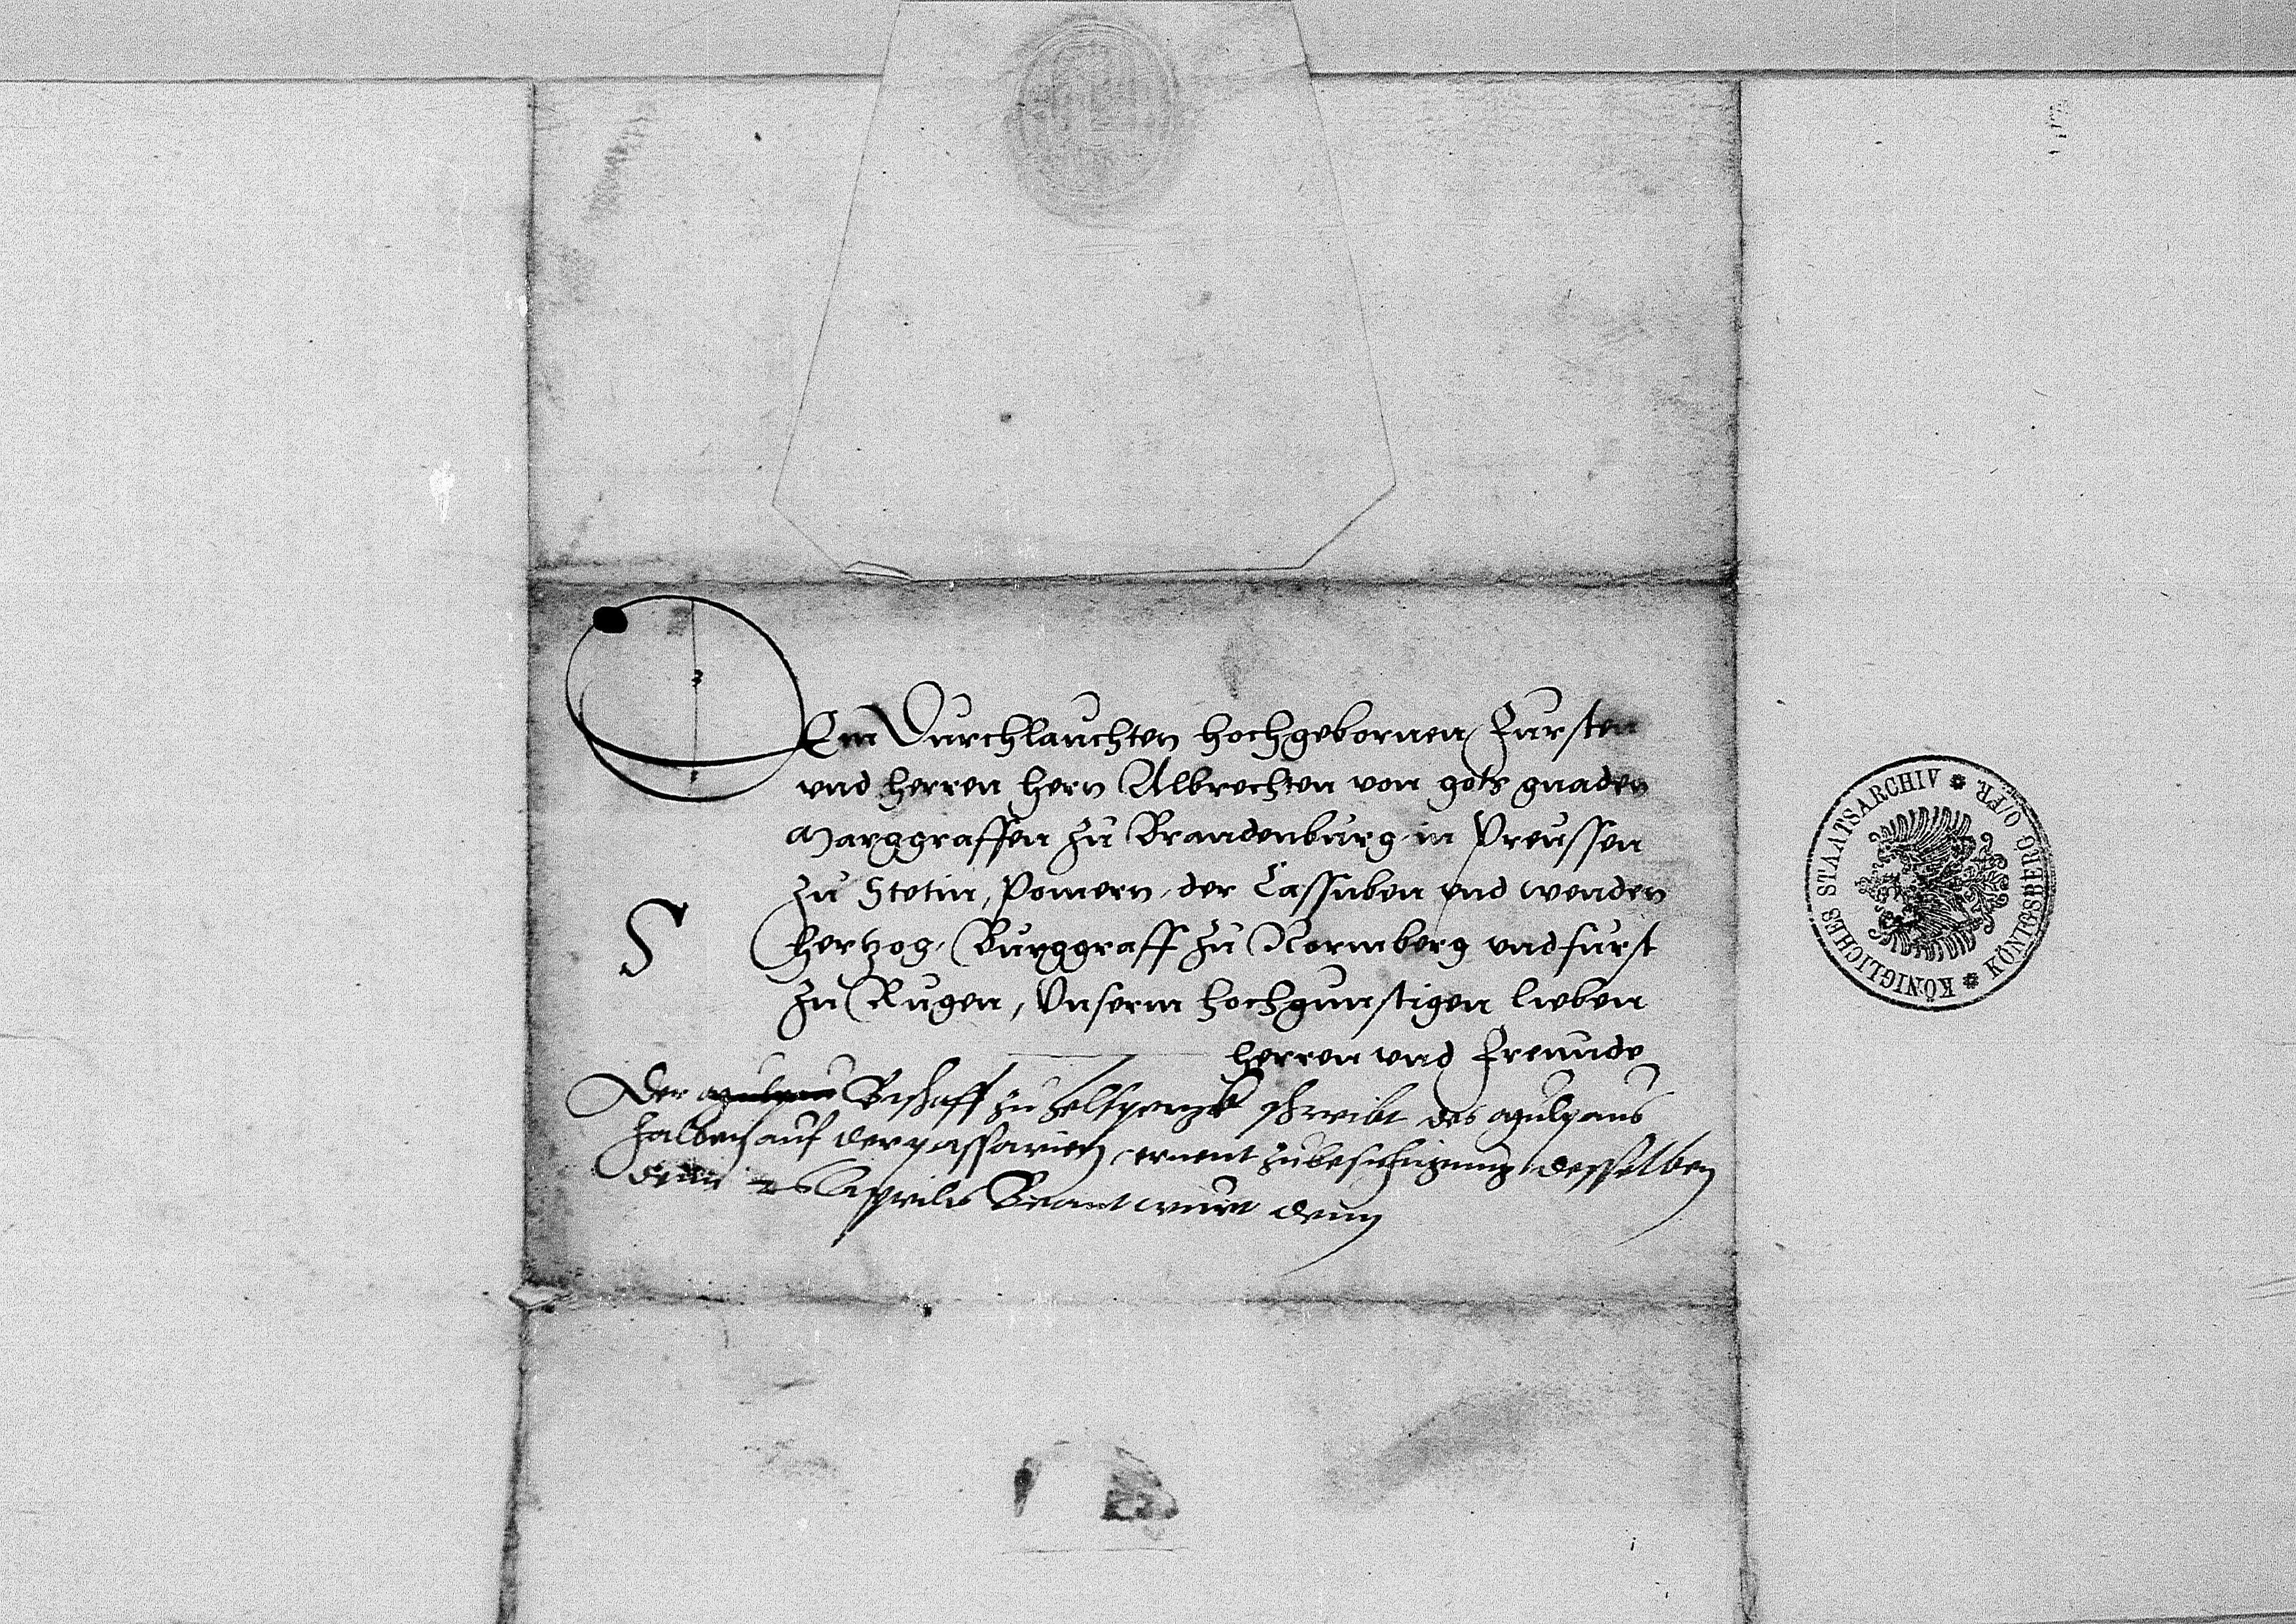 Dem Durchlauchten hochgebornen Fursten
vnd herren hern Albrechten von gots gnaden
Marggraffen zu Brandenburg in Preussen
zu Stetin, Pomern, der Cassuben vnd wenden
hertzog, Burggraff zu Normberg vnd furst
zu Rugen, Vnserm hochgunstigen lieben
herren vnd Freunde
S
Der Bischoff zu schreibt des
halben auf der passarien ernent zubesichtigung desselben
Aprilis Beantwurt
KÖNIGLICHES STAATSARCHIV * KÖNIGSBERG O/PR *